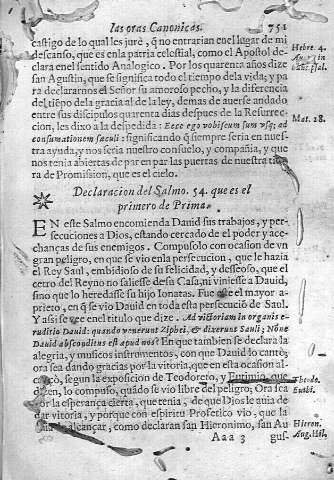 las oras Canonicas. 751
castigo de lo qual les juré, q̃ no entrarian en el lugar de mi
descanso, que es en la patria celestial, como el Apostol de-
clara en el sentido Analogico. Por los quarenta años dize
san Agustin, que se significa todo el tiempo de la vida; y pa
ra declararnos el Señor su amoroso pecho, y la diferencia
del tiẽpo de la gracia al de la ley, demas de auerse andado
entre sus discipulos quarenta dias despues de la Resurrec-
cion, les dixo a la despedida: Ecce ego vobiscum sum vsq; ad
consummationem sæculi: significando q̃ siempre seria en nues-
tra ayuda, y nos seria nuestro consuelo, y compañia, y que
nos tenia abiertas de par en par las puertas de nuestra tie-
rra de Promission, que es el cielo.
Hebr. 4.
Mat. 28.
Declaracion del Salmo. 54. que es el
primero de Prima.
EN este Salmo encomienda Dauid sus trabajos, y per-
secuciones a Dios, estando cercado de el poder y ace-
chanças de sus enemigos. Compusolo con ocasion de vn
gran peligro, en que se vio en la persecucion, que le hazia
el Rey Saul, embidioso de su felicidad, y desseoso, que el
cetro del Reyno no saliesse de su Casa, ni viniesse a Dauid,
sino que lo heredasse su hijo Ionatas. Fue que el mayor a-
priero, en q̃ se vio Dauid en toda esta persecuciõ de Saul.
Y assi se vee en el titulo que dize. Ad victoriam in organis e-
ruditio Dauid: quando venerunt Ziphei, & dixerunt Sauli; Nõne
Dauid absconditus est apud nos? En que tambien se declara la
alegria, y musicos instrumentos, con que Dauid lo cantò,
ora sea dando gracias por la vitoria, que en esta ocasion al-
cançò, segun la exposicion de Teodoreto, y Eutimio, que
dizen, lo compuso, quãdo se viò libre del peligro; Ora sea
por la esperança cierta, que tenia, de que Dios le auia de
dar vitoria, y porque con espiritu Profetico vio, que la
auia de alcançar, como declaran san Hieronimo, san Au
Theodo.
Euthi.
Hieron.
Aug. Hil.
Aaa 3 gus.